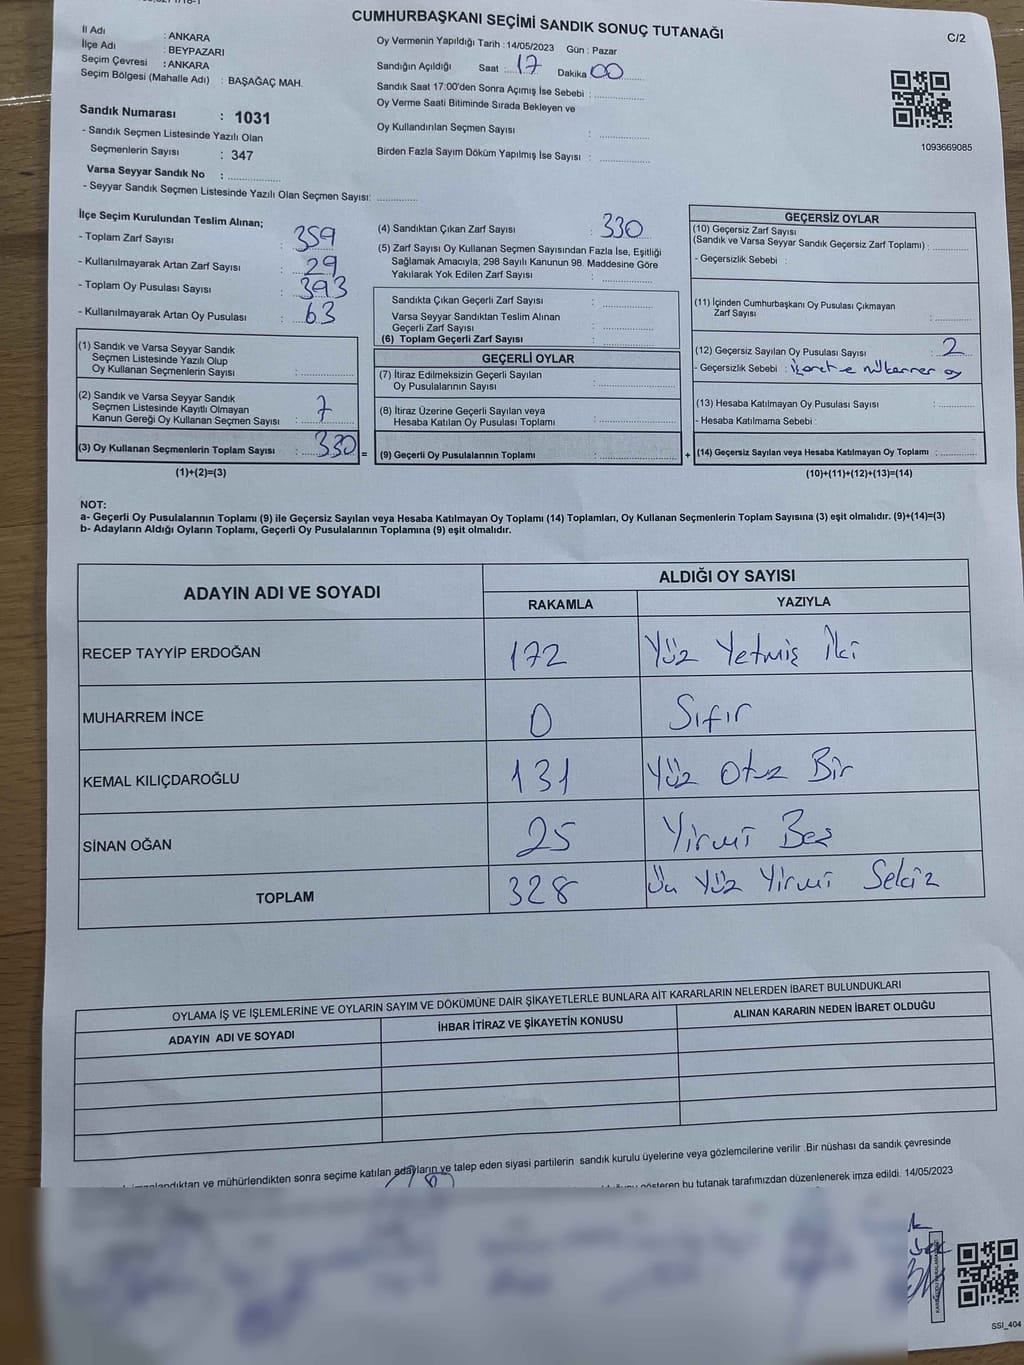 CUMHURBAŞKANI SEÇİMİ SANDIK SONUÇ TUTANAĞI
C/2
İl Adı : ANKARA
İlçe Adı : BEYPAZARI
Seçim Çevresi : ANKARA
Seçim Bölgesi (Mahalle Adı) : BAŞAĞAÇ MAH.
Oy Vermenin Yapıldığı Tarih : 14/05/2023 Gün : Pazar
Sandığın Açıldığı Saat : 17 Dakika 00
Sandık Saat 17:00'den Sonra Açımış İse Sebebi :
Oy Verme Saati Bitiminde Sırada Bekleyen ve
Oy Kullandırılan Seçmen Sayısı :
Birden Fazla Sayım Döküm Yapılmış İse Sayısı :
1093669085
Sandık Numarası : 1031
- Sandık Seçmen Listesinde Yazılı Olan
Seçmenlerin Sayısı : 347
Varsa Seyyar Sandık No :
- Seyyar Sandık Seçmen Listesinde Yazılı Olan Seçmen Sayısı:
İlçe Seçim Kurulundan Teslim Alınan;
- Toplam Zarf Sayısı : 359
- Kullanılmayarak Artan Zarf Sayısı : 29
- Toplam Oy Pusulası Sayısı : 393
- Kullanılmayarak Artan Oy Pusulası : 63
(1) Sandık ve Varsa Seyyar Sandık
Seçmen Listesinde Yazılı Olup
Oy Kullanan Seçmenlerin Sayısı :
(2) Sandık ve Varsa Seyyar Sandık
Seçmen Listesinde Kayıtlı Olmayan
Kanun Gereği Oy Kullanan Seçmen Sayısı : 7
(3) Oy Kullanan Seçmenlerin Toplam Sayısı : 330 =
(1)+(2)=(3)
(4) Sandıktan Çıkan Zarf Sayısı : 330
(5) Zarf Sayısı Oy Kullanan Seçmen Sayısından Fazla İse, Eşitliği
Sağlamak Amacıyla; 298 Sayılı Kanunun 98. Maddesine Göre
Yakılarak Yok Edilen Zarf Sayısı :
Sandıkta Çıkan Geçerli Zarf Sayısı :
Varsa Seyyar Sandıktan Teslim Alınan
Geçerli Zarf Sayısı :
(6) Toplam Geçerli Zarf Sayısı :
GEÇERLİ OYLAR
(7) İtiraz Edilmeksizin Geçerli Sayılan
Oy Pusulalarının Sayısı :
(8) İtiraz Üzerine Geçerli Sayılan veya
Hesaba Katılan Oy Pusulası Toplamı :
(9) Geçerli Oy Pusulalarının Toplamı : +
GEÇERSİZ OYLAR
(10) Geçersiz Zarf Sayısı
(Sandık ve Varsa Seyyar Sandık Geçersiz Zarf Toplamı) :
- Geçersizlik Sebebi :
(11) İçinden Cumhurbaşkanı Oy Pusulası Çıkmayan
Zarf Sayısı :
(12) Geçersiz Sayılan Oy Pusulası Sayısı : 2
- Geçersizlik Sebebi : oy
(13) Hesaba Katılmayan Oy Pusulası Sayısı :
- Hesaba Katılmama Sebebi :
(14) Geçersiz Sayılan veya Hesaba Katılmayan Oy Toplamı :
(10)+(11)+(12)+(13)=(14)
NOT:
a- Geçerli Oy Pusulalarının Toplamı (9) ile Geçersiz Sayılan veya Hesaba Katılmayan Oy Toplamı (14) Toplamları, Oy Kullanan Seçmenlerin Toplam Sayısına (3) eşit olmalıdır. (9)+(14)=(3)
b- Adayların Aldığı Oyların Toplamı, Geçerli Oy Pusulalarının Toplamına (9) eşit olmalıdır.
ADAYIN ADI VE SOYADI
ALDIĞI OY SAYISI
RAKAMLA YAZIYLA
RECEP TAYYİP ERDOĞAN 172 Yüz Yetmiş İki
MUHARREM İNCE 0 Sıfır
KEMAL KILIÇDAROĞLU 131 Yüz Otuz Bir
SİNAN OĞAN 25 Yirmi Beş
TOPLAM 328 Üç Yüz Yirmi Sekiz
OYLAMA İŞ VE İŞLEMLERİNE VE OYLARIN SAYIM VE DÖKÜMÜNE DAİR ŞİKAYETLERLE BUNLARA AİT KARARLARIN NELERDEN İBARET BULUNDUKLARI
ADAYIN ADI VE SOYADI İHBAR İTİRAZ VE ŞİKAYETİN KONUSU ALINAN KARARIN NEDEN İBARET OLDUĞU
ve mühürlendikten sonra seçime katılan adayların ve talep eden siyasi partilerin sandık kurulu üyelerine veya gözlemcilerine verilir. Bir nüshası da sandık çevresinde
gösteren bu tutanak tarafımızdan düzenlenerek imza edildi. 14/05/2023
SSI_404